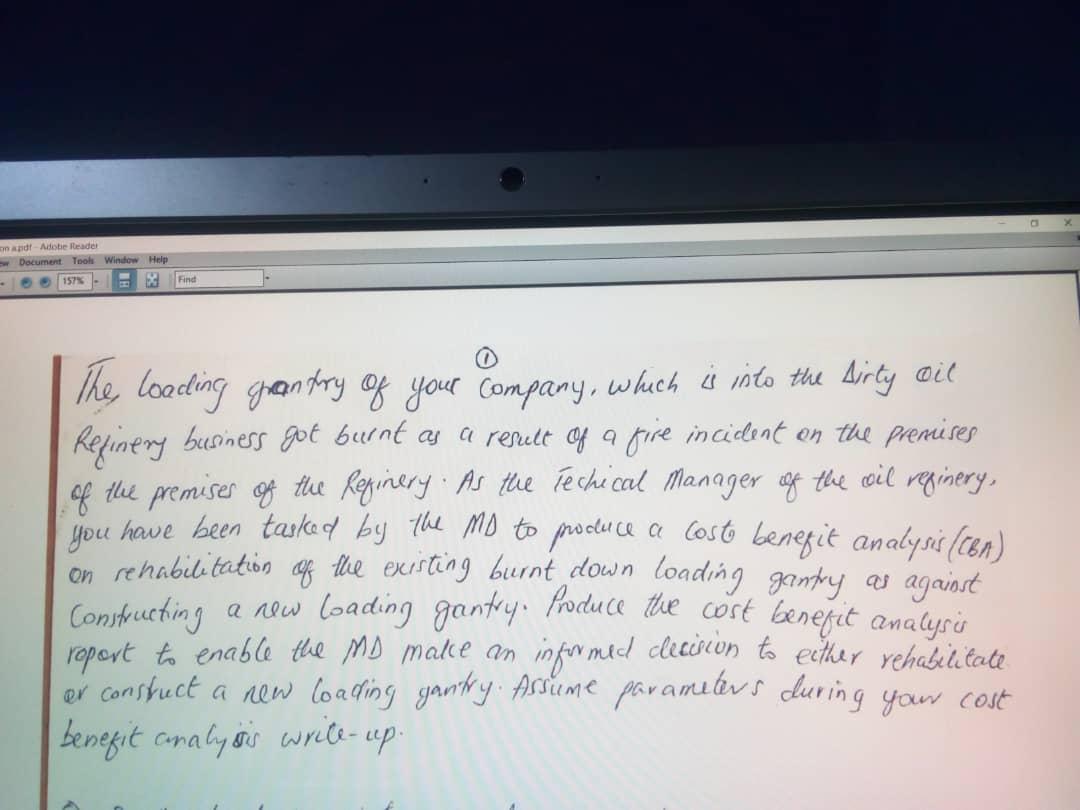 on a.pdf - Adobe Reader
ew Document Tools Window Help
157% Find
①
The loading gantry of your Company, which is into the Dirty oil
Refinery business got burnt as a result of a fire incident on the premises
of the premises of the Refinery. As the Techical Manager of the oil refinery,
you have been tasked by the MD to produce a Cost benefit analysis (CBA)
on rehabilitation of the existing burnt down loading gantry as against
Constructing a new loading gantry. Produce the cost benefit analysis
report to enable the MD make an informed decision to either rehabilitate
or construct a new loading gantry. Assume parameters during your cost
benefit analysis write-up.